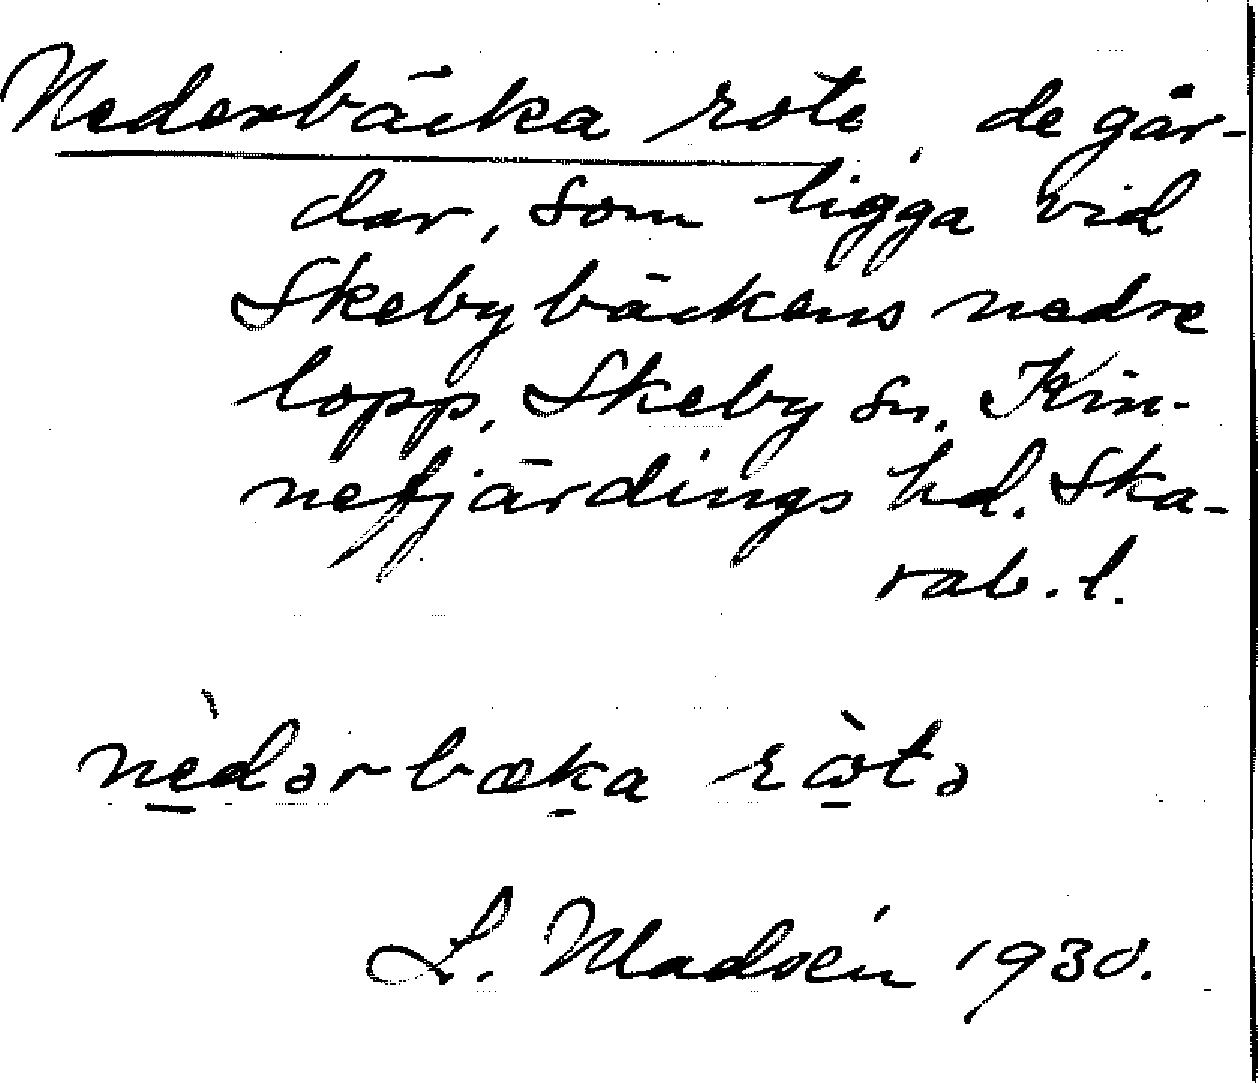 Nederbäcka rote, de går-
dar, som ligga vid
Skebybäckens nedre
lopp, Skeby sn, Kin-
nefjärdings hd. Ska-
rab. l.
nèdərbæka ròtə
L. Madsén 1930.